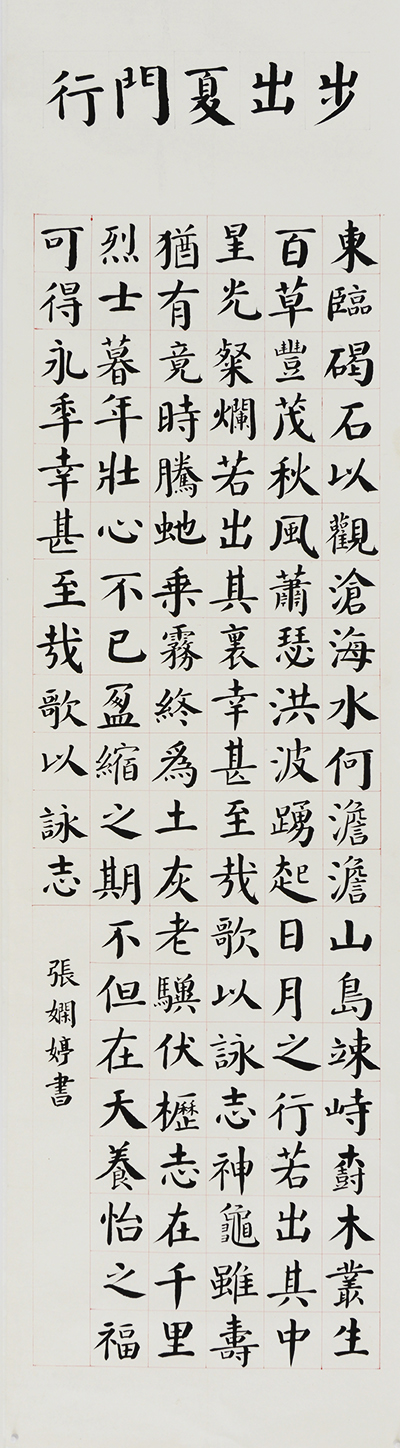 步出夏門行
東臨碣石以觀滄海水何澹澹山島竦峙樹木叢生
百草豐茂秋風蕭瑟洪波踴起日月之行若出其中
星光粲爛若出其裏幸甚至哉歌以詠志神龜雖壽
猶有竟時騰虵乘霧終為土灰老驥伏櫪志在千里
烈士暮年壯心不已盈縮之期不但在天養怡之福
可得永年幸甚至哉歌以詠志
張嫻婷書